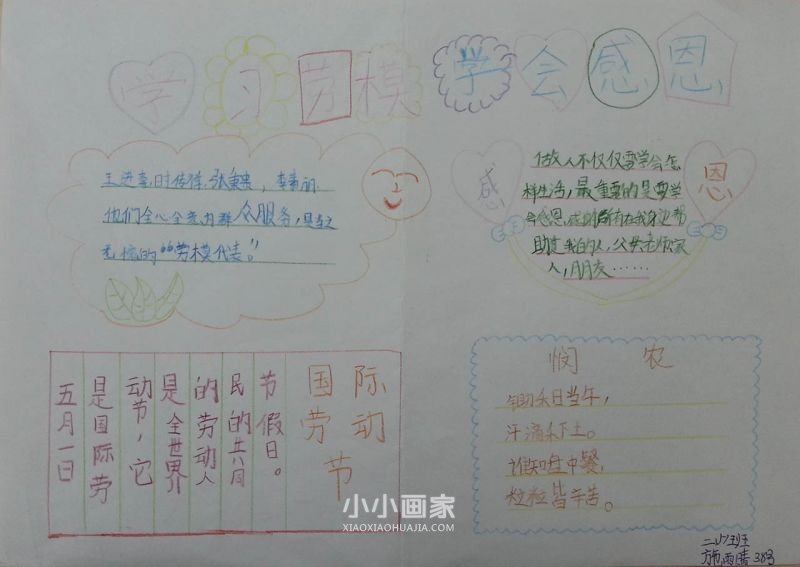 学习劳模 学会感恩
王进喜,时传祥,张秉贵,李素丽
他们全心全意为群众服务,是当之
无愧的“劳模代表。”
感 恩
做人不仅仅要学会怎
样生活,最重要的是要学
会感恩,感恩所有在我身边帮
助过我的人,父母老师家
人,朋友……
国际
劳动
节
五月一日
是国际劳
动节,它
是全世界
的劳动人
民的共同
节假日。
悯 农
锄禾日当午,
汗滴禾下土。
谁知盘中餐,
粒粒皆辛苦。
小小画家
XIAOXIAOHUAJIA.COM
雨晴 38号